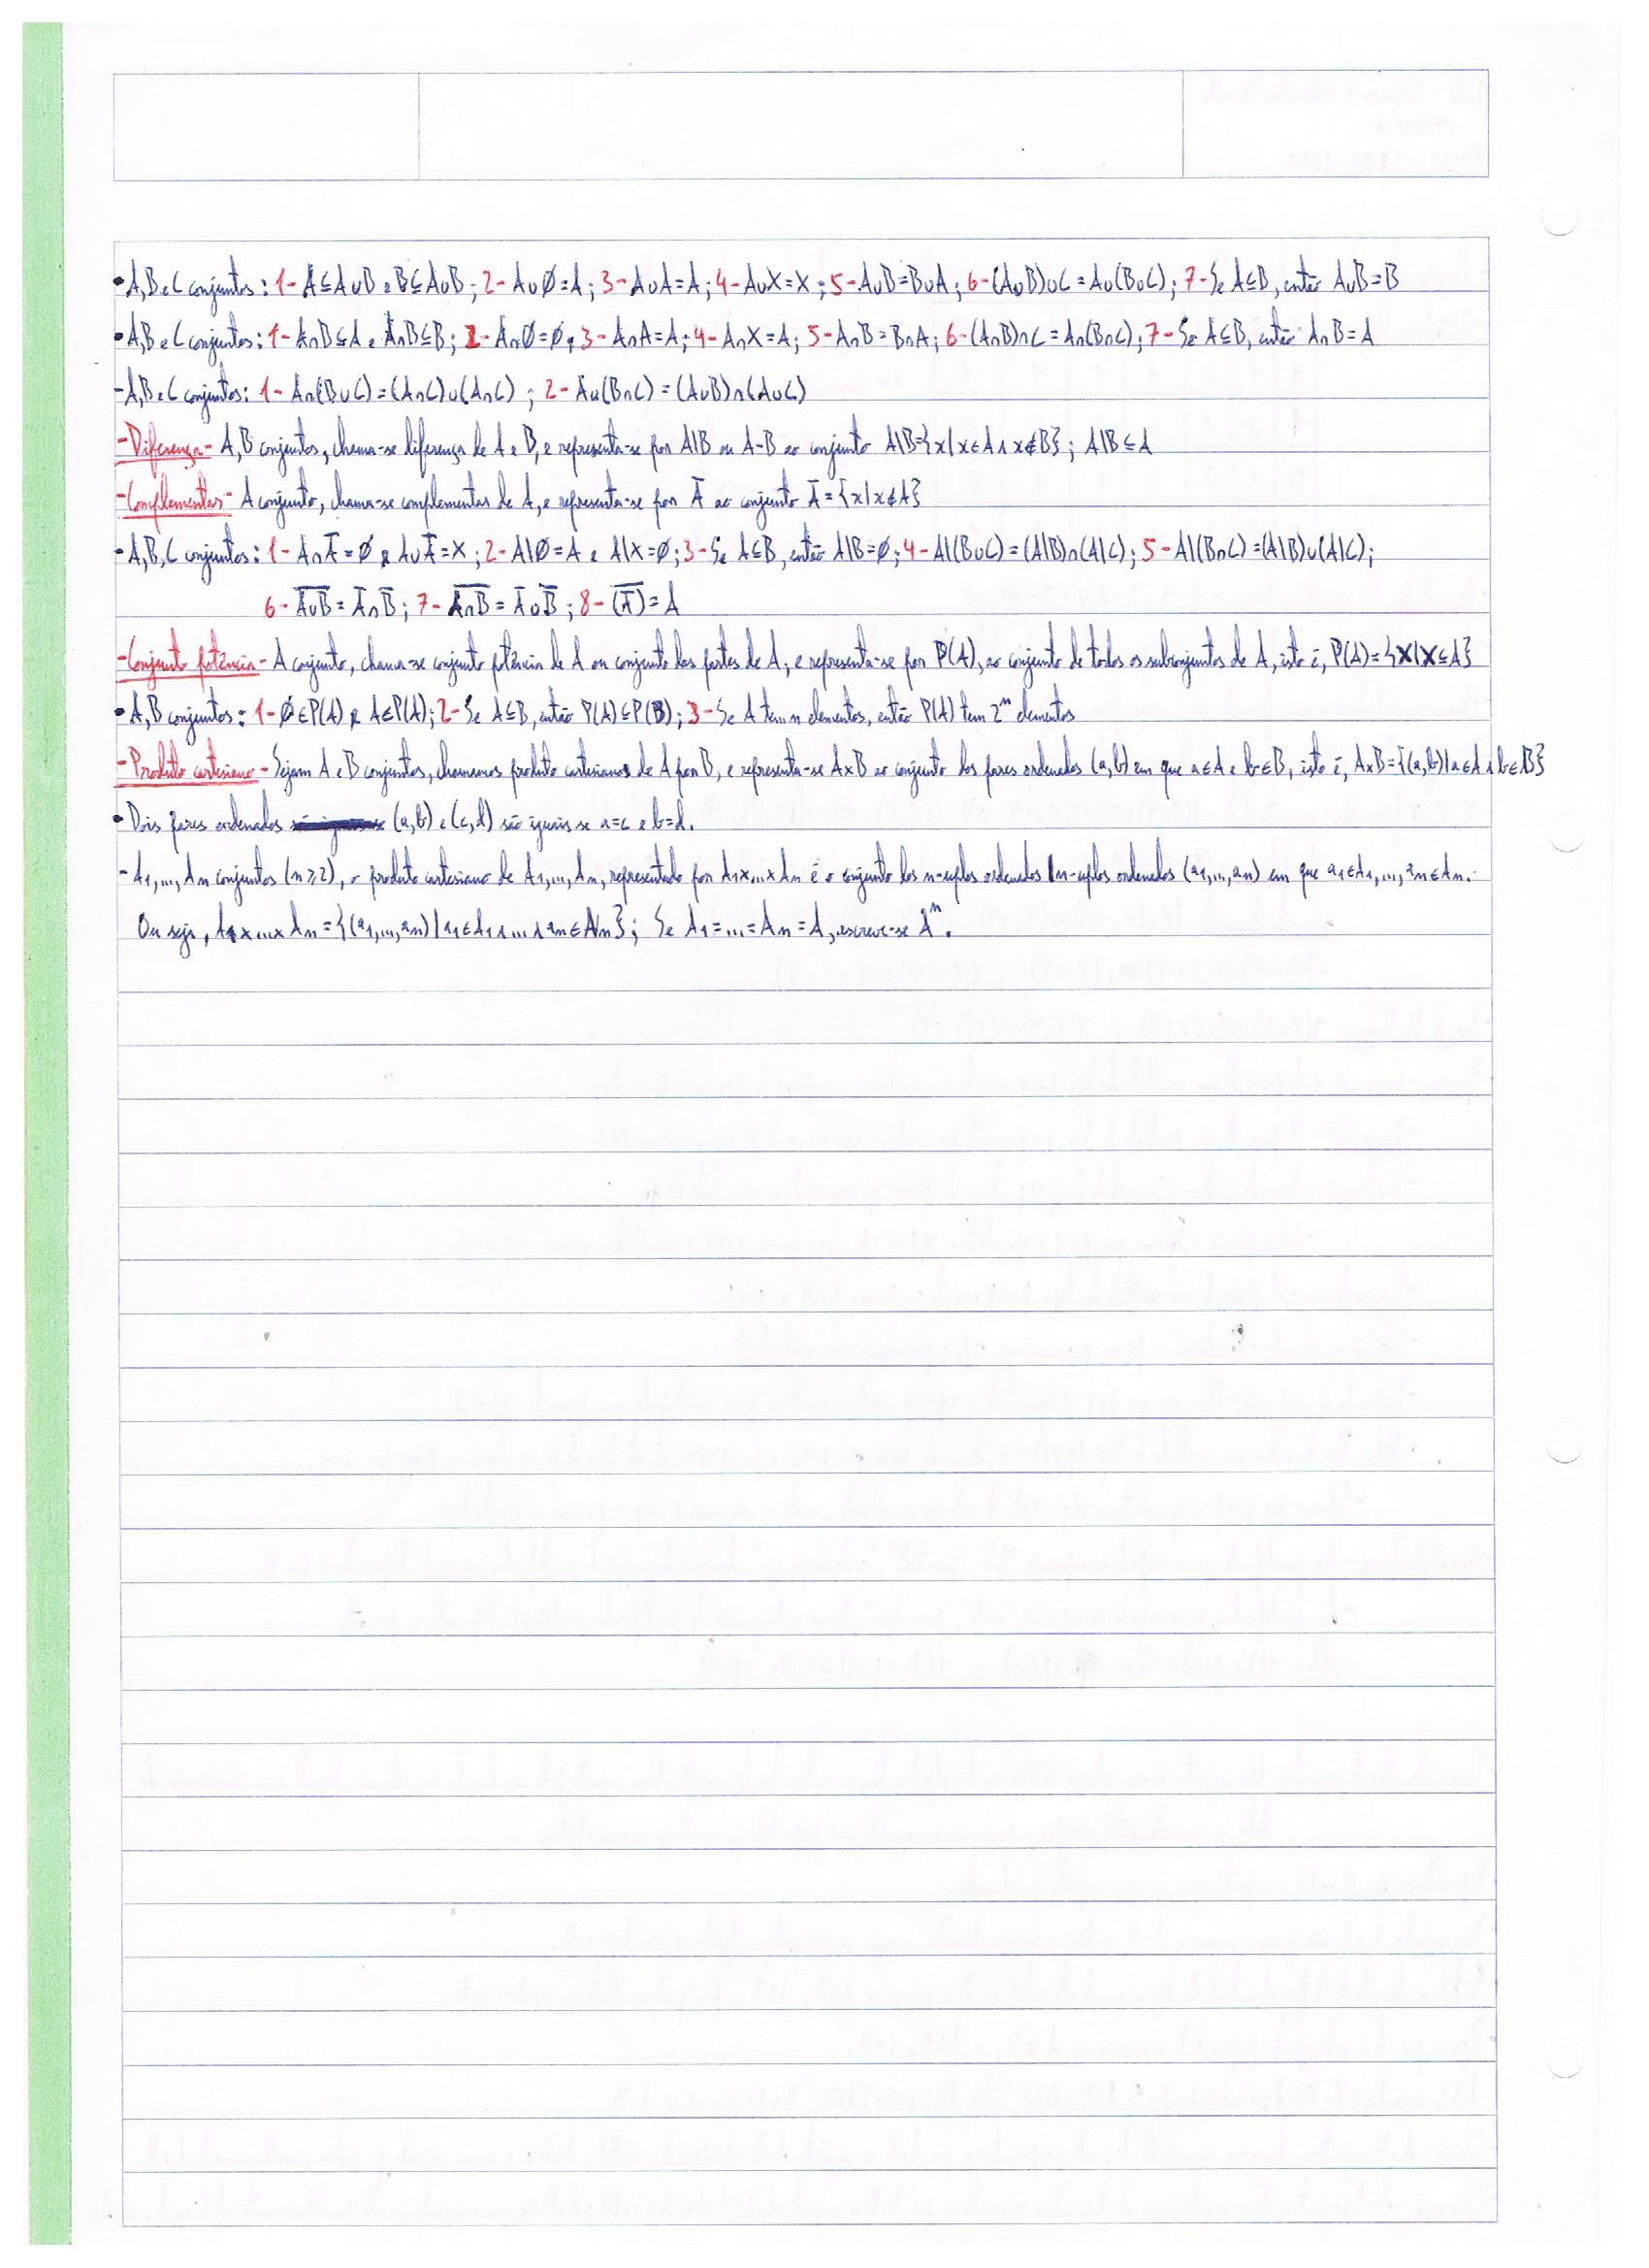 • A,B e C conjuntos: 1- A⊆A∪B e B⊆A∪B; 2- A∪Ø=A; 3- A∪A=A; 4- A∪X=X; 5- A∪B=B∪A; 6- (A∪B)∪C=A∪(B∪C); 7- Se A⊆B, então A∪B=B
• A,B e C conjuntos: 1- A∩B⊆A e A∩B⊆B; 2- A∩Ø=Ø; 3- A∩A=A; 4- A∩X=A; 5- A∩B=B∩A; 6- (A∩B)∩C=A∩(B∩C); 7- Se A⊆B, então A∩B=A
- A,B e C conjuntos: 1- A∩(B∪C)=(A∩C)∪(A∩C); 2- A∪(B∩C)=(A∪B)∩(A∪C)
- Diferença - A,B conjuntos, chama-se diferença de A e B, e representa-se por A\B ou A-B ao conjunto A\B={x|x∈A∧x∉B}; A\B⊆A
- Complementar - A conjunto, chama-se complementar de A, e representa-se por Ā ao conjunto Ā={x|x∉A}
• A,B,C conjuntos: 1- A∩Ā=Ø e A∪Ā=X; 2- A\Ø=A e A\X=Ø; 3- Se A⊆B, então A\B=Ø; 4- A\(B∪C)=(A\B)∩(A\C); 5- A\(B∩C)=(A\B)∪(A\C);
6- A̅∪̅B̅=A̅∩B̅; 7- A̅∩̅B̅=A̅∪B̅; 8- (̅A̅)̅=A
- Conjunto potência - A conjunto, chama-se conjunto potência de A ou conjunto das partes de A, e representa-se por P(A), ao conjunto de todos os subconjuntos de A, isto é, P(A)={X|X⊆A}
• A,B conjuntos: 1- Ø∈P(A) e A∈P(A); 2- Se A⊆B, então P(A)⊆P(B); 3- Se A tem n elementos, então P(A) tem 2ⁿ elementos
- Produto cartesiano - Sejam A e B conjuntos, chamamos produto cartesianos de A por B, e representa-se A×B ao conjunto dos pares ordenados (a,b) em que a∈A e b∈B, isto é, A×B={(a,b)|a∈A∧b∈B}
• Dois pares ordenados (a,b) e (c,d) são iguais se a=c e b=d.
- A₁,...,Aₙ conjuntos (n≥2), o produto cartesiano de A₁,...,Aₙ, representado por A₁×...×Aₙ é o conjunto dos n-uplos ordenados n-uplos ordenados (a₁,...,aₙ) em que a₁∈A₁,...,aₙ∈Aₙ.
Ou seja, A₁×...×Aₙ={(a₁,...,aₙ)|a₁∈A₁∧...∧aₙ∈Aₙ}; Se A₁=...=Aₙ=A, escreve-se Aⁿ.